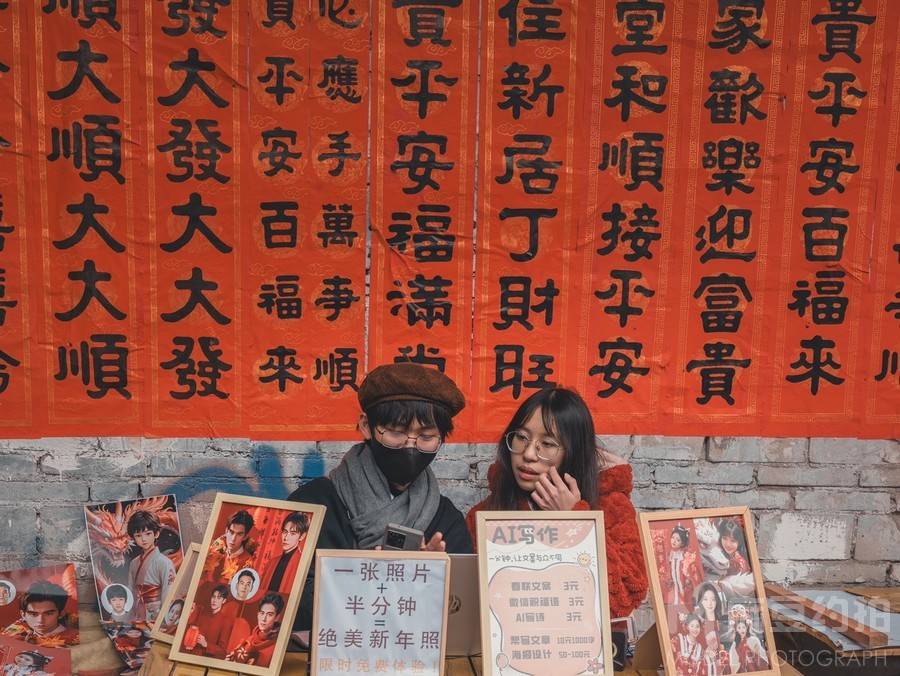 順大順大大順
發大發大大發
貴平安百福來
心應手萬事順
貴平安福滿堂
佳新居丁財旺
堂和順接平安
家歡樂迎富貴
貴平安百福來
一张照片
+
半分钟
=
绝美新年照
限时免费体验!
AI写作
一分钟,让文案与众不同
春联文案 3元
微信祝福语 3元
AI写诗 3元
帮写文章 10元1000字
海报设计 50-100元
豆约拍
PHOTOGRAPH